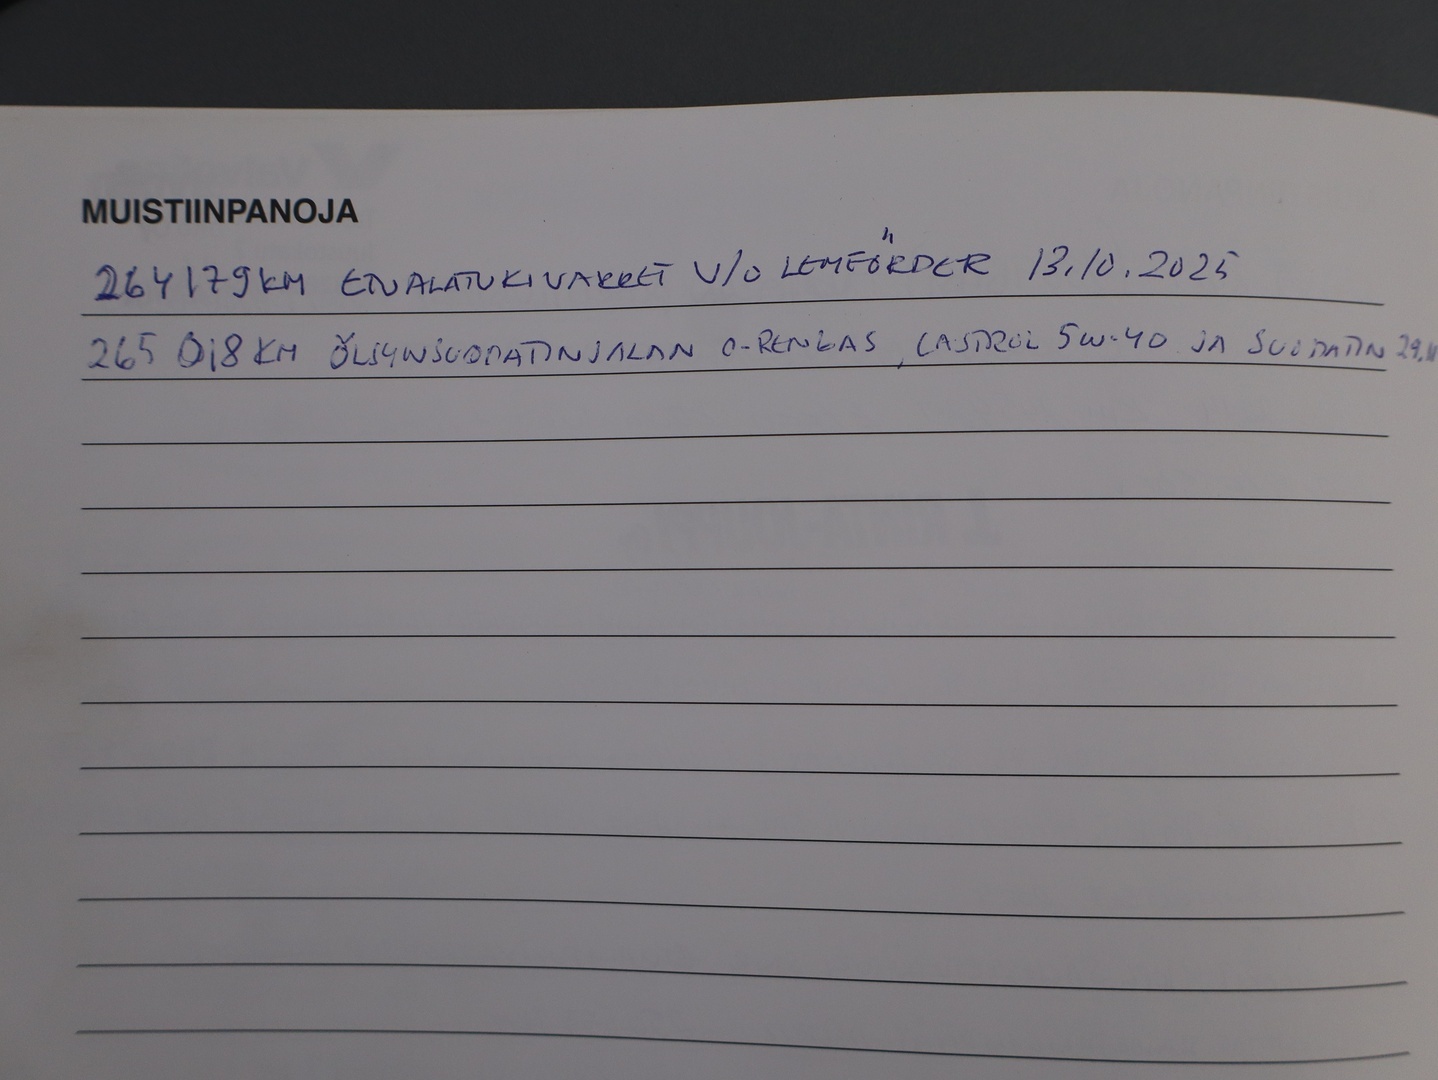 MUISTIINPANOJA
264179KM ETUALATUKIVARRET V/O LEMFÖRDER 13.10.2025
265 018 KM ÖLJYNSUODATINJALAN O-RENGAS, CASTROL 5W-40 JA SUODATIN 29.